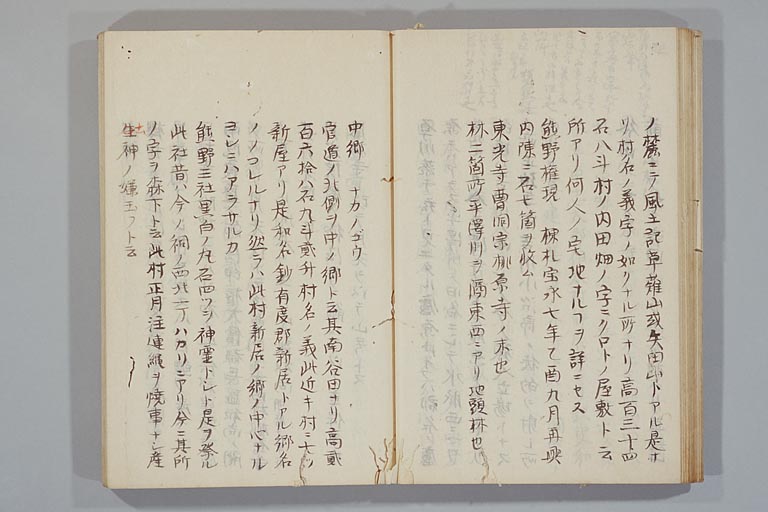 ノ麓ニテ風土記草薙山或矢田山トアル是ナ
リ村名ノ義字ノ如クナル所ナリ高百三十四
石八斗村ノ内田畑ノ字ニクロトノ屋敷ト云
所アリ何人ノ宅地ナルヿヲ詳ニセス
熊野権現 棟札宝永七年乙酉九月再興
内陳ニ石七箇ヲ收ム
東光寺 曹洞宗桃原寺ノ末也
林二箇所 平澤川ヲ隔東西ニアリ地頭林也
中郷 ナカノゴウ
官道ノ北側ヲ中ノ郷ト云其南谷田ナリ高貳
百六拾八石九斗貳升村名ノ義此近キ村ニ七ツ
新屋アリ是和名鈔有度郡新居トアル郷名
ノノコレルナリ然ラハ此村新居ノ郷ノ中心ナル
ヨシニハアラサルカ
熊野三社 黒白ノ丸石四ツヲ神霊トシト是ヲ祭ル
此社昔ハ今ノ祠ノ西北二丁ハカリニアリ今ニ其所
ノ字ヲ森下ト云此村正月注連縄ヲ焼事ナシ産
生神ノ嫌玉フト云